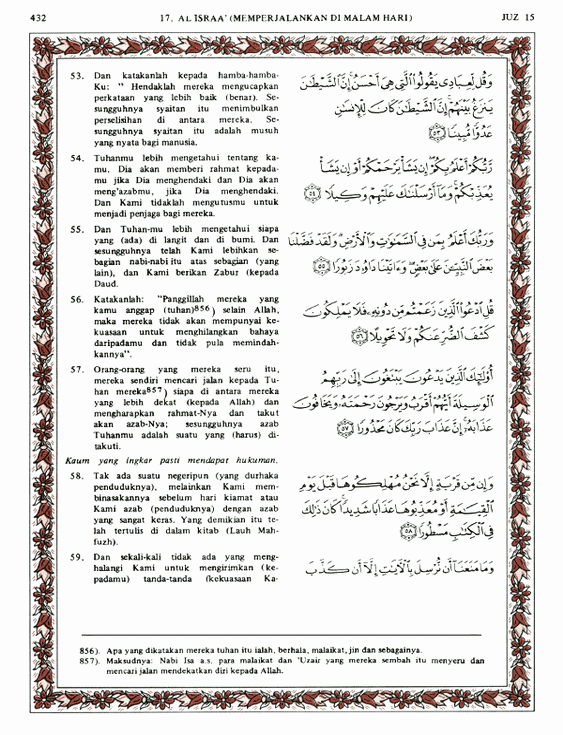 432
17. AL ISRAA' (MEMPERJALANKAN DI MALAM HARI)
JUZ 15
53. Dan katakanlah kepada hamba-hamba-
Ku: " Hendaklah mereka mengucapkan
perkataan yang lebih baik (benar). Se-
sungguhnya syaitan itu menimbulkan
perselisihan di antara mereka. Se-
sungguhnya syaitan itu adalah musuh
yang nyata bagi manusia.
وَقُل لِّعِبَادِى يَقُولُوا۟ ٱلَّتِى هِىَ أَحْسَنُ إِنَّ ٱلشَّيْطَٰنَ
يَنزَغُ بَيْنَهُمْ إِنَّ ٱلشَّيْطَٰنَ كَانَ لِلْإِنسَٰنِ
عَدُوًّا مُّبِينًا ٥٣
54. Tuhanmu lebih mengetahui tentang ka-
mu. Dia akan memberi rahmat kepada-
mu jika Dia menghendaki dan Dia akan
meng'azabmu, jika Dia menghendaki.
Dan Kami tidaklah mengutusmu untuk
menjadi penjaga bagi mereka.
رَّبُّكُمْ أَعْلَمُ بِكُمْ إِن يَشَأْ يَرْحَمْكُمْ أَوْ إِن يَشَأْ
يُعَذِّبْكُمْ وَمَآ أَرْسَلْنَٰكَ عَلَيْهِمْ وَكِيلًا ٥٤
55. Dan Tuhan-mu lebih mengetahui siapa
yang (ada) di langit dan di bumi. Dan
sesungguhnya telah Kami lebihkan se-
bagian nabi-nabi itu atas sebagian (yang
lain), dan Kami berikan Zabur (kepada
Daud.
وَرَبُّكَ أَعْلَمُ بِمَن فِى ٱلسَّمَٰوَٰتِ وَٱلْأَرْضِ وَلَقَدْ فَضَّلْنَا
بَعْضَ ٱلنَّبِيِّۦنَ عَلَىٰ بَعْضٍ وَءَاتَيْنَا دَاوُۥدَ زَبُورًا ٥٥
56. Katakanlah: "Panggillah mereka yang
kamu anggap (tuhan)856) selain Allah,
maka mereka tidak akan mempunyai ke-
kuasaan untuk menghilangkan bahaya
daripadamu dan tidak pula memindah-
kannya".
قُلِ ٱدْعُوا۟ ٱلَّذِينَ زَعَمْتُم مِّن دُونِهِۦ فَلَا يَمْلِكُونَ
كَشْفَ ٱلضُّرِّ عَنكُمْ وَلَا تَحْوِيلًا ٥٦
57. Orang-orang yang mereka seru itu,
mereka sendiri mencari jalan kepada Tu-
han mereka857) siapa di antara mereka
yang lebih dekat (kepada Allah) dan
mengharapkan rahmat-Nya dan takut
akan azab-Nya; sesungguhnya azab
Tuhanmu adalah suatu yang (harus) di-
takuti.
أُو۟لَٰٓئِكَ ٱلَّذِينَ يَدْعُونَ يَبْتَغُونَ إِلَىٰ رَبِّهِمُ
ٱلْوَسِيلَةَ أَيُّهُمْ أَقْرَبُ وَيَرْجُونَ رَحْمَتَهُۥ وَيَخَافُونَ
عَذَابَهُۥٓ إِنَّ عَذَابَ رَبِّكَ كَانَ مَحْذُورًا ٥٧
Kaum yang ingkar pasti mendapat hukuman.
58. Tak ada suatu negeripun (yang durhaka
penduduknya), melainkan Kami mem-
binasakannya sebelum hari kiamat atau
Kami azab (penduduknya) dengan azab
yang sangat keras. Yang demikian itu te-
lah tertulis di dalam kitab (Lauh Mah-
fuzh).
وَإِن مِّن قَرْيَةٍ إِلَّا نَحْنُ مُهْلِكُوهَا قَبْلَ يَوْمِ
ٱلْقِيَٰمَةِ أَوْ مُعَذِّبُوهَا عَذَابًا شَدِيدًا كَانَ ذَٰلِكَ
فِى ٱلْكِتَٰبِ مَسْطُورًا ٥٨
59. Dan sekali-kali tidak ada yang meng-
halangi Kami untuk mengirimkan (ke-
padamu) tanda-tanda (kekuasaan Ka-
وَمَا مَنَعَنَآ أَن نُّرْسِلَ بِٱلْءَايَٰتِ إِلَّآ أَن كَذَّبَ
856). Apa yang dikatakan mereka tuhan itu ialah, berhala, malaikat, jin dan sebagainya.
857). Maksudnya: Nabi Isa a.s. para malaikat dan 'Uzair yang mereka sembah itu menyeru dan
mencari jalan mendekatkan diri kepada Allah.